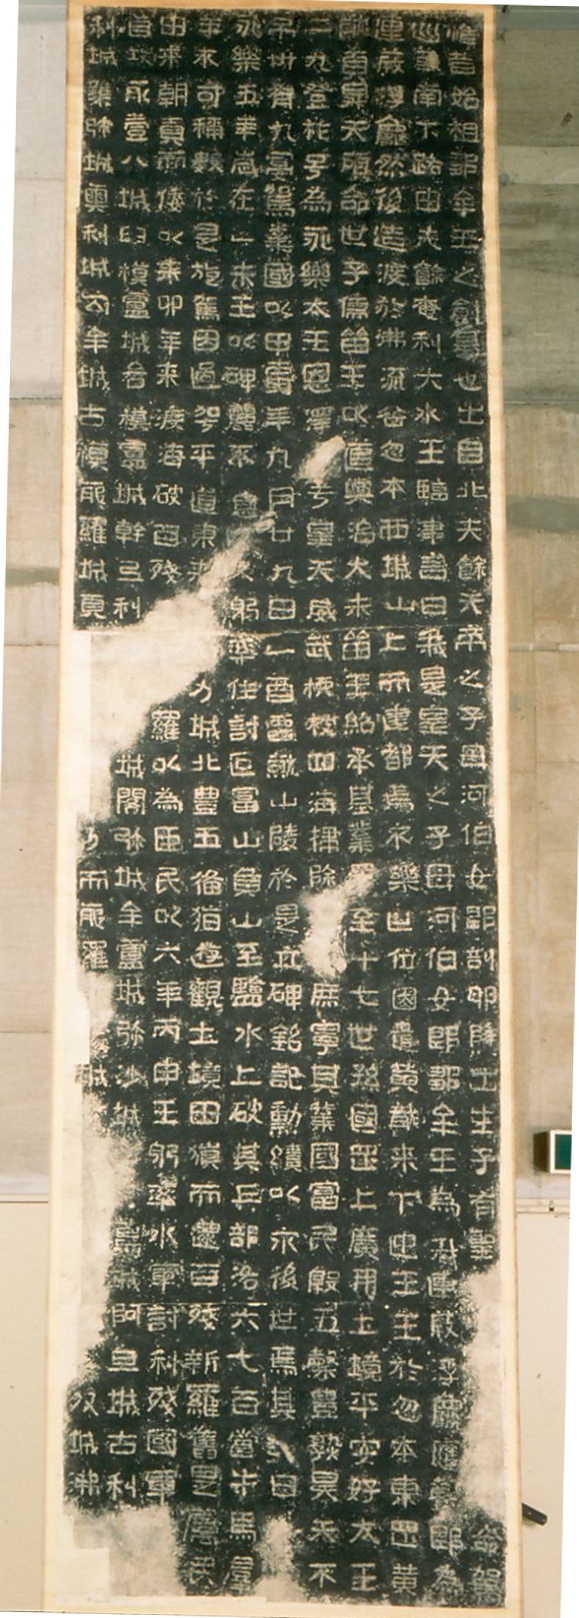 惟昔始祖鄒牟王之創基也出自北夫餘天帝之子母河伯女郎剖卵降世生子有聖命駕
巡車南下路由夫餘奄利大水王臨津言曰我是皇天之子母河伯女郎鄒牟王為我連葭浮龜應聲即為
連葭浮龜然後造渡於沸流谷忽本西城山上而建都焉不樂世位因遣黃龍來下迎王王於忽本東罡黃
龍負昇天顧命世子儒留王以道興治大朱留王紹承基業至十七世孫國罡上廣開土境平安好太王
二九登祚号為永樂太王恩澤于皇天威武振被四海掃除庶寧其業國富民殷五穀豐熟昊天不
弔卅有九寔駕棄國以甲寅年九月廿九日乙酉遷就山陵於是立碑銘記勳績以永後世焉其曰
永樂五年歲在乙未王以碑麗不躬率住討叵富山負山至鹽水上破其丘部洛六七百當牛馬群
羊不可稱數於是旋駕因過平道東力城北豐五備猶遊觀土境田獵而還百殘新羅舊是屬民
由來朝貢而倭以辛卯年來渡海破百殘羅以為臣民以六年丙申王躬率水軍討利殘國軍
首攻壹八城臼模盧城各模盧城幹弖利城閣彌城牟盧城彌沙城蔦城阿旦城古利
利城雜彌城奧利城勾牟城古須耶羅城頁分而耶羅城双城沸